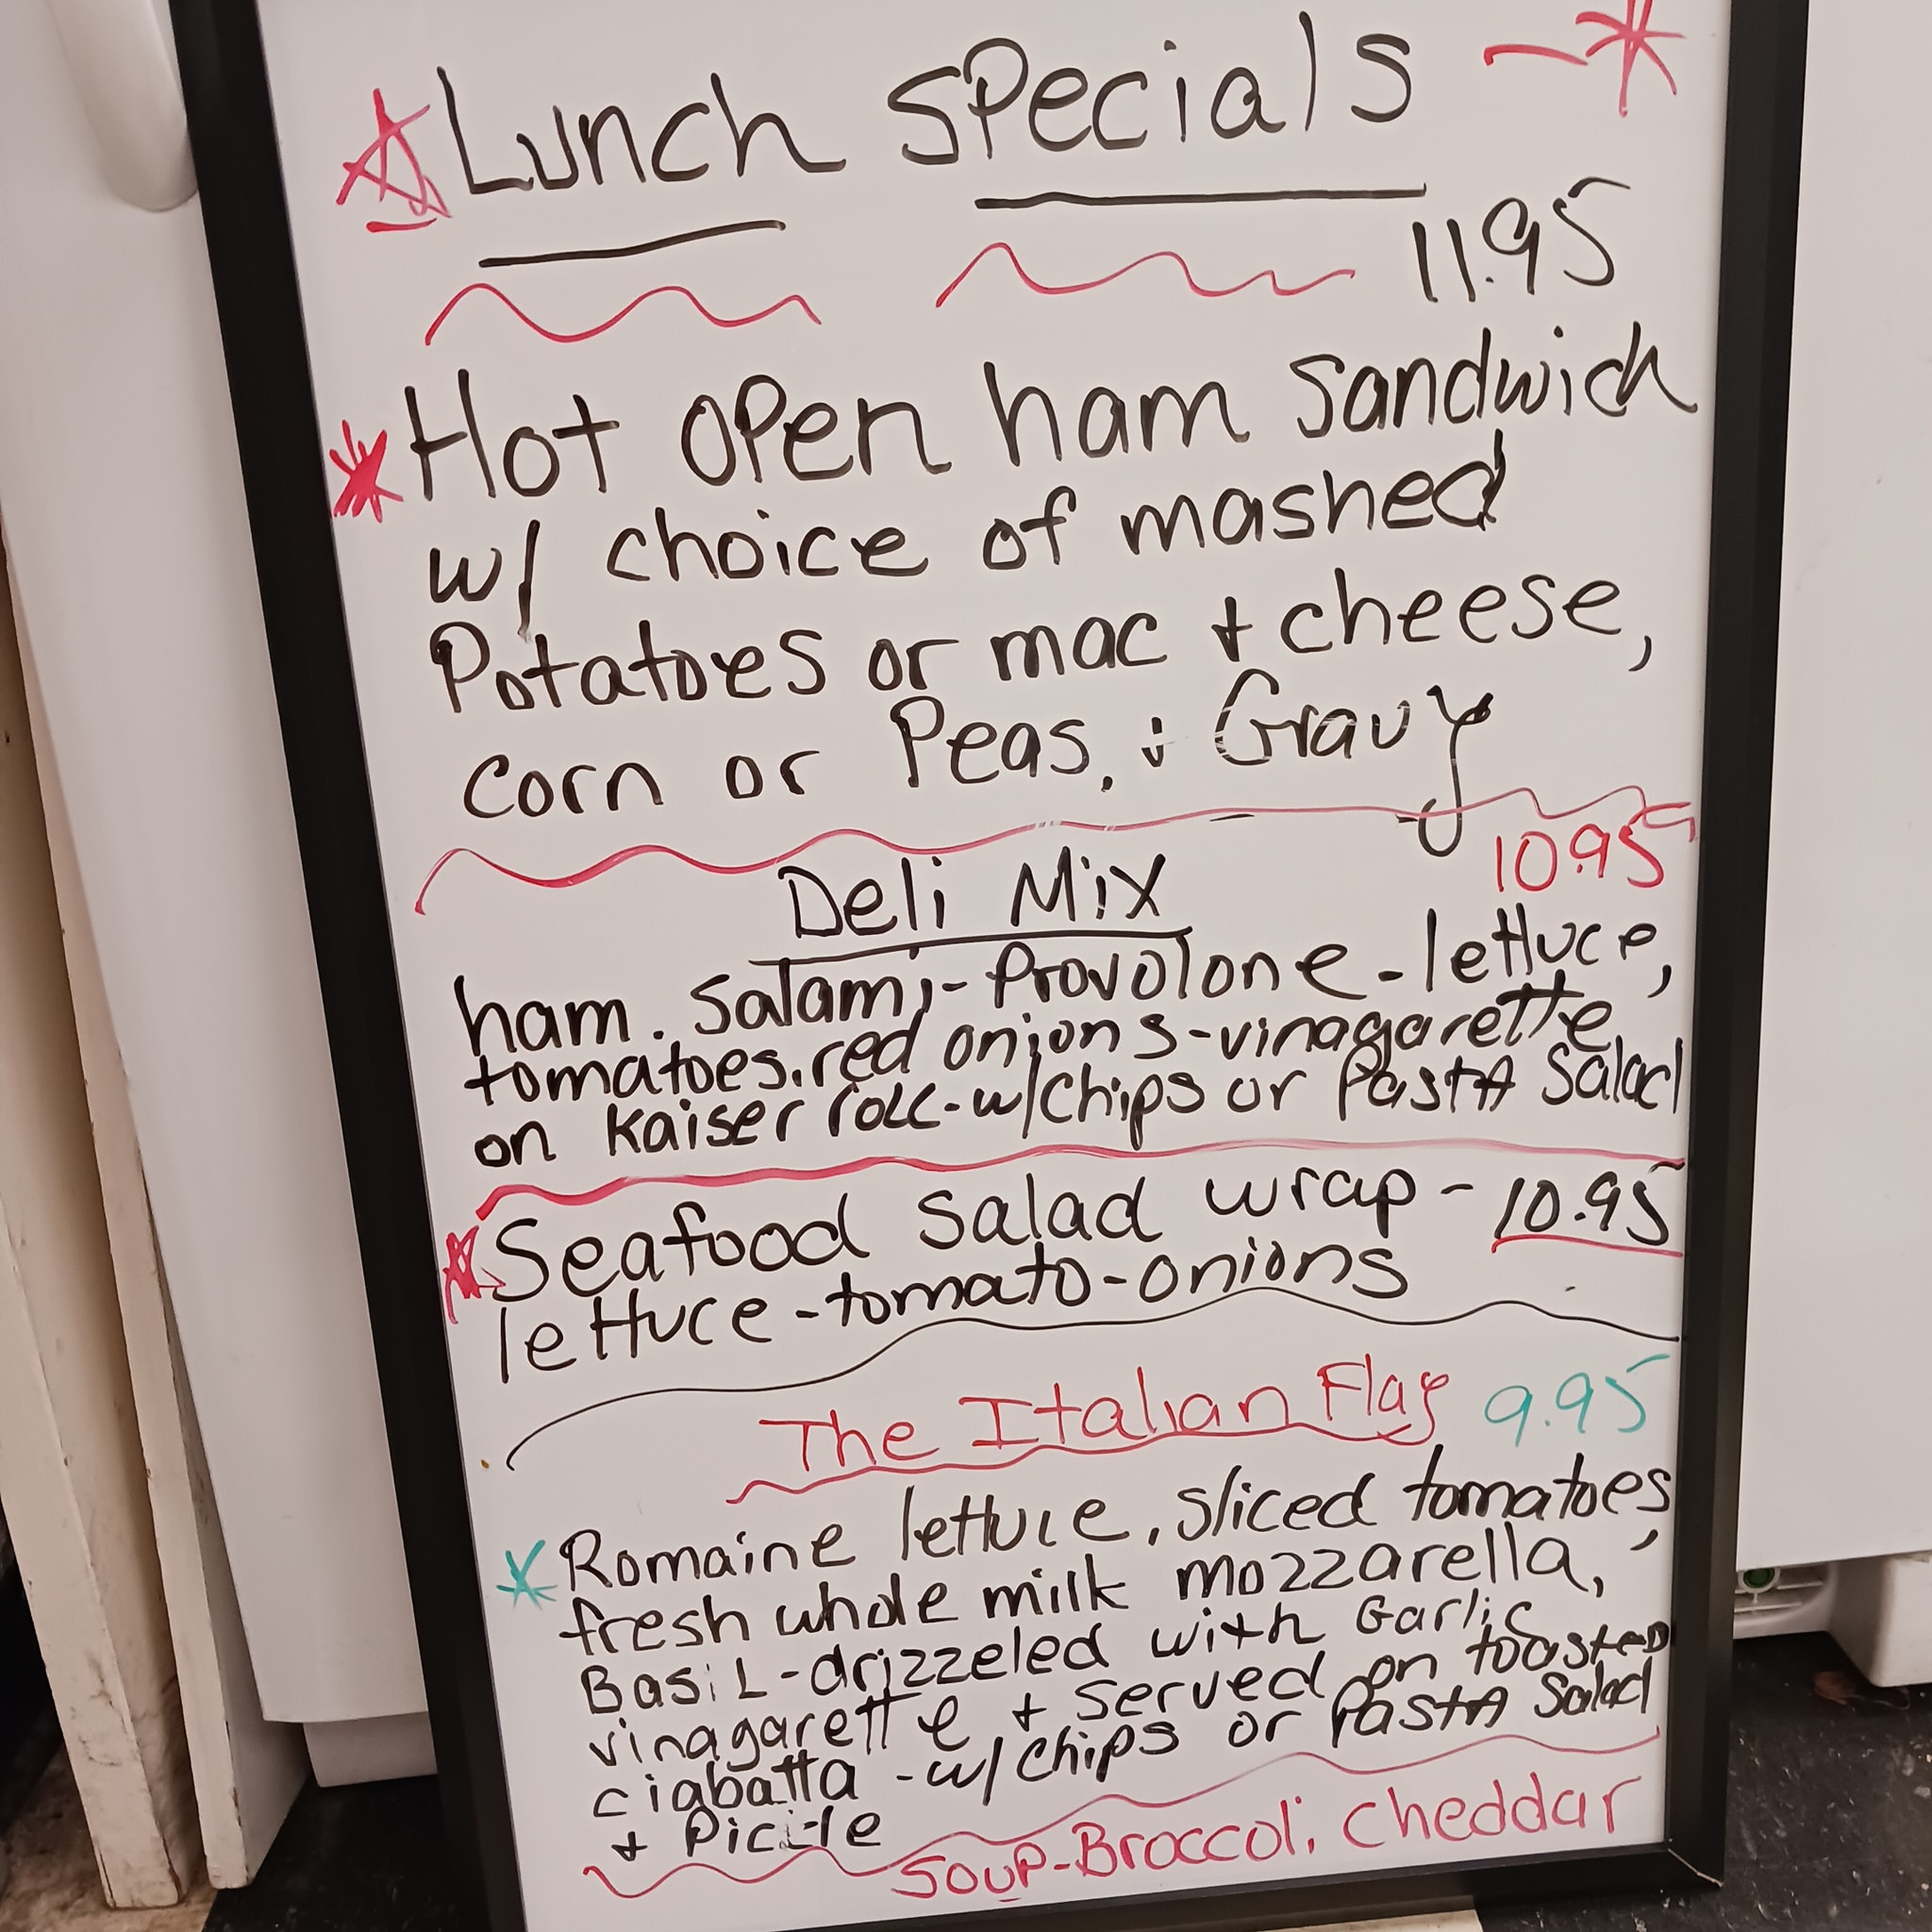 Lunch Specials
11.95
Hot open ham sandwich
w/ choice of mashed
Potatoes or mac + cheese,
corn or Peas, + Gravy
10.95
Deli Mix
ham. Salami - Provolone - lettuce,
tomatoes, red onions - vinagarette
on kaiser roll - w/chips or Pasta Salad
Seafood Salad wrap - 10.95
lettuce - tomato - onions
The Italian Flag 9.95
Romaine lettuce, sliced tomatoes,
fresh whole milk mozzarella,
Basil - drizzeled with Garlic
vinagarette + served on toasted
ciabatta - w/ chips or Pasta Salad
+ Pickle
Soup - Broccoli Cheddar